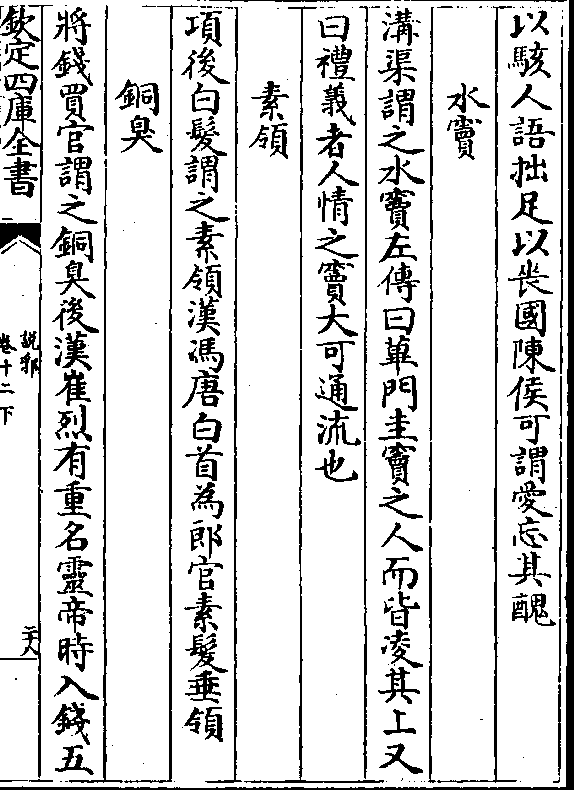 以駭人語拙足以喪國陳侯可謂愛忘其醜
水竇
溝渠謂之水竇左傳曰蓽門圭竇之人而皆凌其上又
曰禮義者人情之竇大可通流也
素領
項後白髮謂之素領漢馮唐白首為郎官素髮垂領
銅臭
將錢買官謂之銅臭後漢崔烈有重名靈帝時入錢五
欽定四庫全書
說郛
卷十二下
二十八